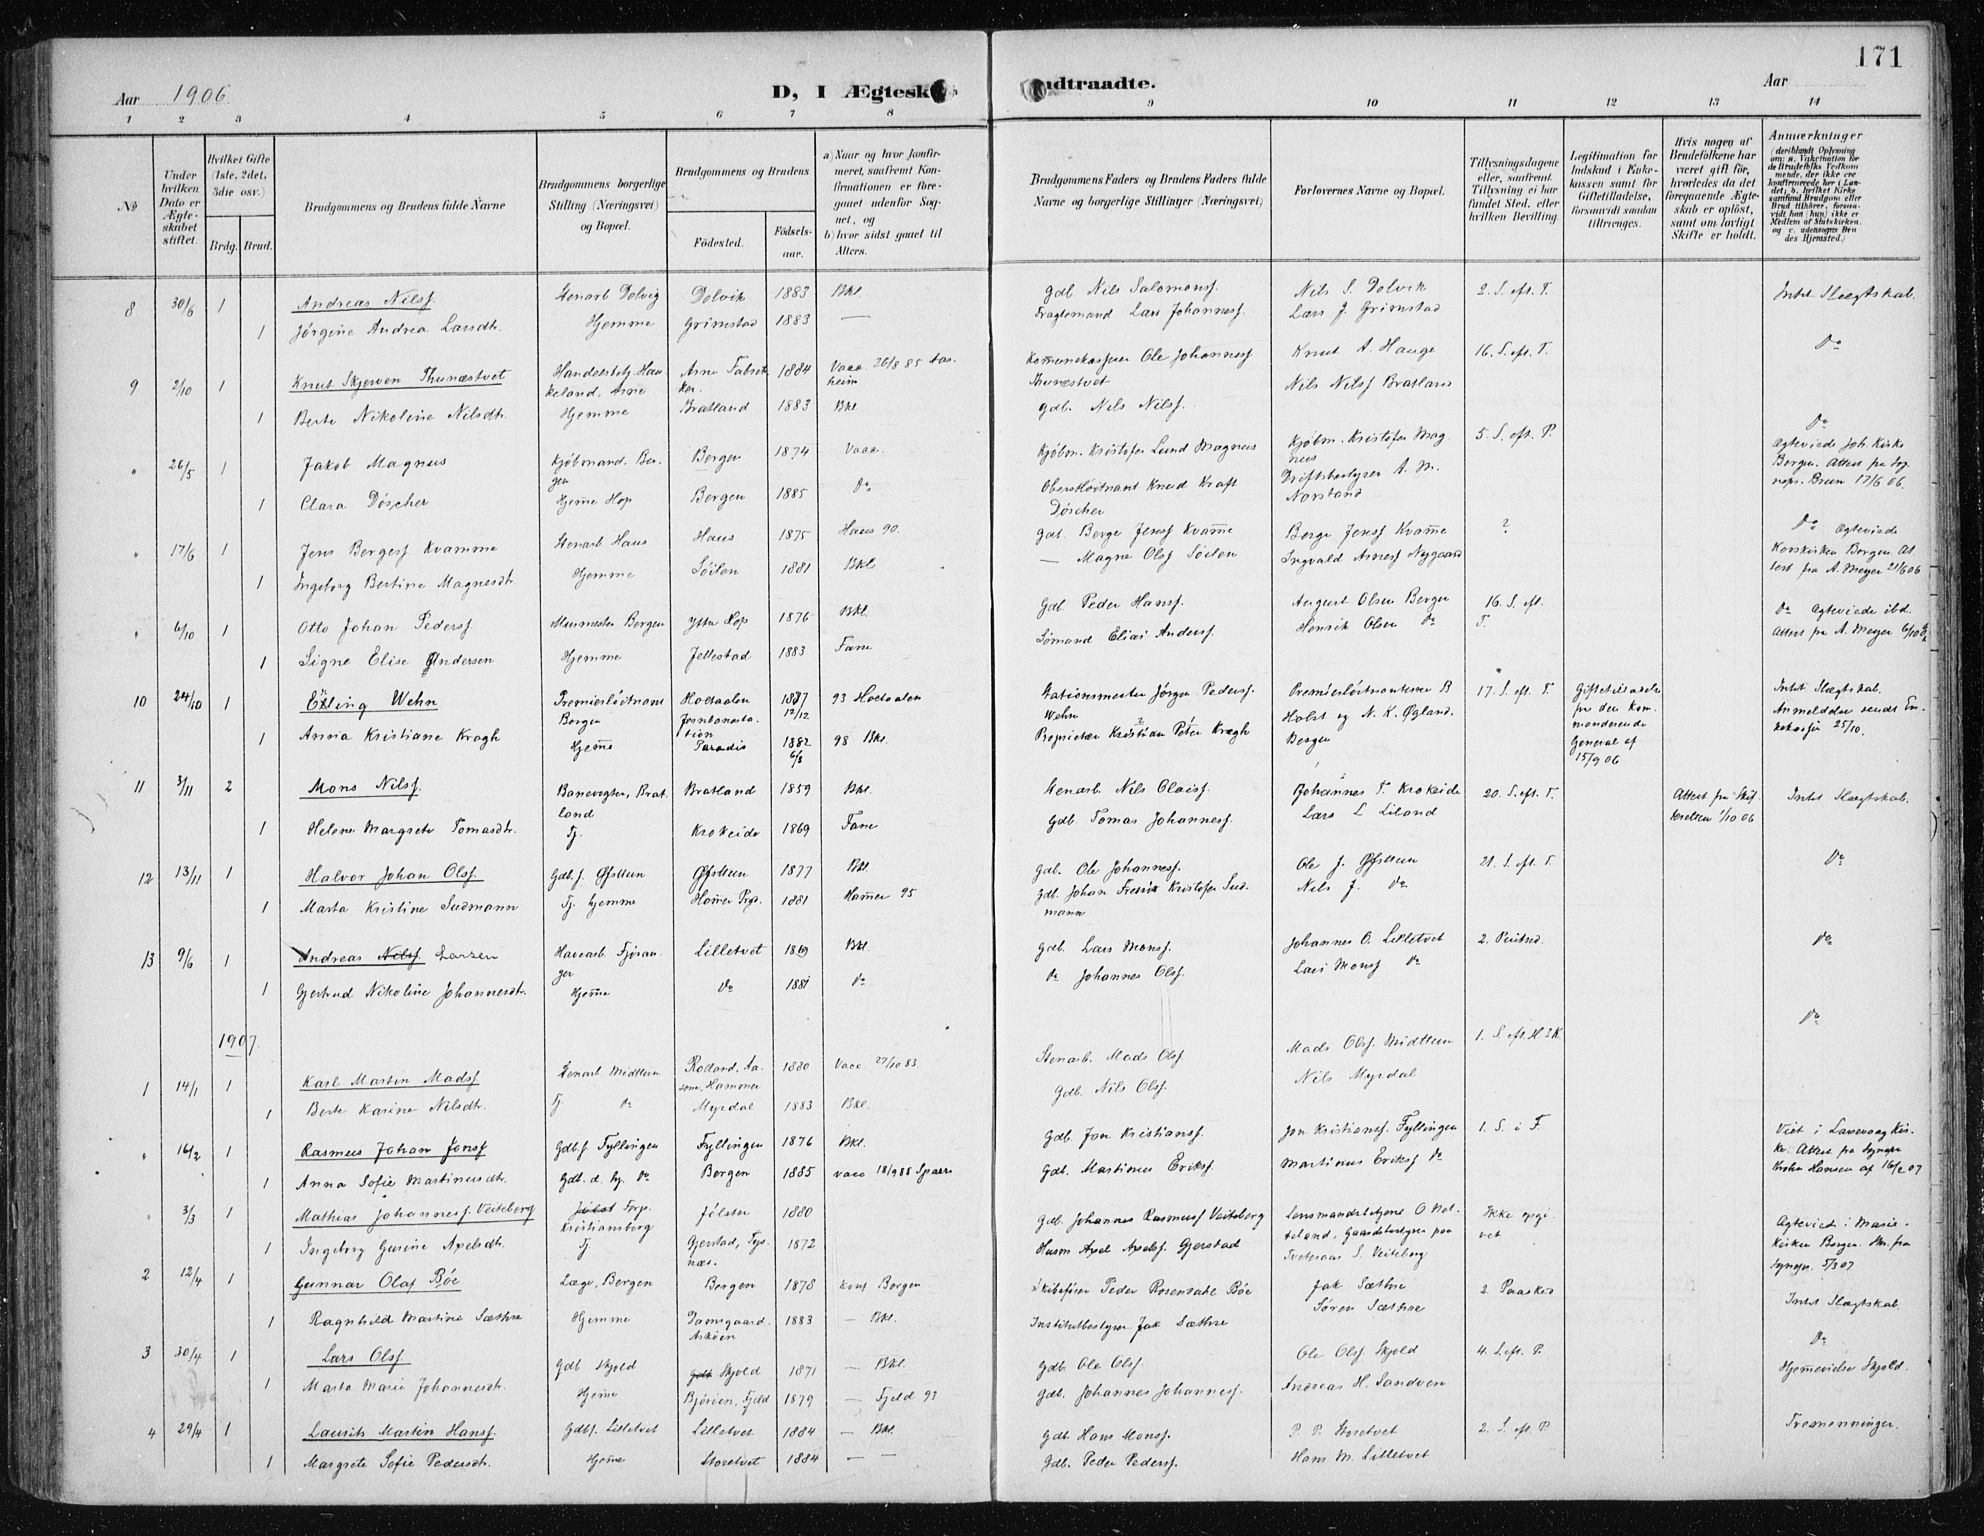 171
Aar 1906
D, I Ægtesk
ndtraadte.
Aar
1 2 3 4 5 6 7 8 9 10 11 12 13 14
No
Under hvilken Dato er Ægteskabet stiftet.
Hvilket Gifte (1ste, 2det, 3die osv.)
Brdg. Brud.
Brudgommens og Brudens fulde Navne
Brudgommens borgerlige Stilling (Næringsvei) og Bopæl.
Brudgommens og Brudens
Fødested. Fødselsaar.
a) Naar og hvor konfirmeret, saafremt Konfirmationen er foregaaet udenfor Sognet, og
b) hvor sidst gaaet til Alters.
Brudgommens Faders og Brudens Faders fulde Navne og borgerlige Stillinger (Næringsvei)
Forlovernes Navne og Bopæl.
Tillysningsdagene eller, saafremt Tillysning ei har fundet Sted, efter hvilken Bevilling.
Legitimation for Indskud i Enkekassen samt for Giftetilladelse, forsaavidt saadan tiltrænges.
Hvis nogen af Brudefolkene har været gift før, hvorledes da det foregaaende Ægteskab er opløst, samt om lovligt Skifte er holdt.
Anmærkninger
8 30/6 1 Andreas Nilsf. Stenarb Dolvig Dolvik 1883 Bkl. Gdb. Nils Salomonsf. Nils S. Dolvik 2. S. eft. T. Intet Slægtskab.
1 Jørgine Andrea Larsdtr. Hjemme Grimstad 1883 — Fragtemand Lars Johannesf. Lars J. Grimstad
9 2/10 1 Knut Skjerven Thunæstvet Handelsbetj. Haukeland, Arne Arne Fabrikker. 1884 Vacc. 26/8 85 Aasheim Komunekasserer Ole Johannesf Thunæstvet Knut A. Hauge 16. S. eft. T. Do
1 Berte Nikoline Nilsdtr. Hjemme Bratland 1883 Bkl. Gdb. Nils Nilsf. Nils Nilsf Bratland
" 26/5 1 Jakob Magnus Kjøbmand. Bergen Bergen 1874 Vacc. Kjøbm. Kristofer Lund Magnus Kjøbm. Kristofer Magnus 5. S. eft. P. Do Ægteviede Joh. Kirke Bergen. Attest fra Sognepr. Bruun 17/6 06.
1 Clara Döscher Hjemme Hop Bergen 1885 Do Oberstløitnant Knud Kraft Döscher Driftsbestyrer A. M. Norstand
" 17/6 1 Jens Bergesf. Kvamme Stenarb. Haus Haus 1875 Haus 90. Gdb. Berge Jensf Kvamme Berge Jensf Kvamme ? Do Ægteviede Korskirken Bergen. Attest fra A. Meyer 21/6 06
1 Ingeborg Bertine Magnesdtr. Hjemme Söilen 1881 Bkl. — Magne Olsf Söilen Ingvald Arnesf Nygaard
" 6/10 1 Otto Johan Pedersf Murmester Bergen Ytre Hop 1876 Bkl. Gdb. Peder Hansf. August Olsen Bergen 16. S. eft. T. Do Ægteviede ibd. Attest fra A. Meyer 6/10 06
1 Signe Elise Andersen Hjemme Jellestad 1883 Fane Sömand Elias Andersf. Henrik Olsen Do
10 24/10 1 Erling Wehn Premierlöitnant Bergen Holtaalen Jernbanestation 1877 12/12 93 Holtaalen Stationsmester Jörgen Pedersf. Wehn Premierlöitnanterne B Holst og N. K. Øgland. Bergen 17. S. eft. T. Giftetilladelse fra den kommanderende General af 15/9 06 Intet Slægtskab. Anmeldelse sendt Enkekassen 25/10.
1 Anna Kristiane Kragh Hjemme Paradis 1882 6/8 98 Bkl. Proprietær Kristian Peter Kragh
11 3/11 2 Mons Nilsf. Banevogter, Bratland Bratland 1859 Bkl. Stenarb Nils Olaisf. Johannes T. Krokeide 20. S. eft. T. Attest fra Skifteretten 1/10 06 Intet Slægtskab.
1 Helene Margrete Tomasdtr. Tj. Krokeide 1869 Fane Gdb. Tomas Johannesf. Lars L Liland
12 13/11 1 Halvor Johan Olsf. Gdb.f. Øfsttun Øfsttun 1877 Bkl. Gdb. Ole Johannesf. Ole J. Øfsttun 21. S. eft. T. Do
1 Marta Kristine Sudmann Tj. hjemme Hamer Prgj. 1881 Hamer 95 Gdb. Johan Fredrik Kristofer Sudmann Nils J. Do
13 9/6 1 Andreas Nilsf. Larsen Havearb. Fjösanger Lilletvet 1869 Bkl. Gdb. Lars Monsf. Johannes O. Lilletvet 2. Pintsed. Do
1 Gjertrud Nikoline Johannesdtr. Hjemme Do 1881 Do Do Johannes Olsf. Lars Monsf Do
1907.
1 14/1 1 Karl Martin Madsf Stenarb. Midttun Rolland, Aasene, Hammer 1880 Vacc 27/10 83 Stenarb. Mads Olsf Mads Olsf. Midttun 1. S. eft. H3K. Do
1 Berte Karine Nilsdtr. Tj. Do Myrdal 1883 Bkl. Gdb. Nils Olsf. Nils Myrdal
" 16/2 1 Rasmus Johan Jonsf Gdb.f Fyllingen Fyllingen 1876 Bkl. Gdb. Jon Kristiansf. Jon Kristiansf. Fyllingen 1. S. i F. Viet i Laxevaag Kirke. Attest fra Sognepr Krohn Hansen af 16/2 07
1 Anna Sofie Martinusdtr. Gdb. d. hj. Do Bergen 1885 vacc 18/9 88 Gdb. Martinus Eriksf. Martinus Eriksf Do
" 3/3 1 Mathias Johannesf. Veiteberg Jølst Kristiansborg Jölster 1880 Gdb. Johannes Rasmusf Veiteberg Lensmandsbetjent O Natteland, Gaardsbestyrer paa Tveteraas S. Veiteberg Ikke opgivet Ægteviede i Mariekirken Bergen. Skr. fra Sognepr. 5/3 07
1 Ingeborg Gurine Axelsdtr. Tj. Gjerstad, Tysnæs. 1872 Husm Axel Axelsf. Gjerstad
2 12/4 1 Gunnar Olaf Böe Læge, Bergen Bergen 1878 Konf Bergen Skibsfører Peder Rosendahl Böe Jak Sæthre 2 Paasked Intet Slægtskab.
1 Ragnhild Martine Sæthre Hjemme Damsgaard. Askøen 1883 — Bkl. Institutbestyrer Jak Sæthre Sören Sæthre
3 30/4 1 Lars Olsf. Gdb Skjold Skjold 1871 — Bkl. Gdb. Ole Olsf. Ole Olsf Skjold 4. S. eft. P. Do Hjemmevielse Skjold.
1 Marta Marie Johannesdtr. Hjemme Björöen, Fjeld 1879 — Fjeld 93 Gdb. Johannes Johannesf. Andreas H. Sandven
4 29/4 1 Laurits Martin Hansf. Gdbf. Lilletvet Lilletvet 1884 — Bkl. Gdb. Hans Monsf. P. P. Storetvet 2. S. eft. P. Tremenninger.
1 Margrete Sofie Pedersdtr. Hjemme Storetvet 1884 — Gdb. Peder Pedersf. Hans M. Lilletvet